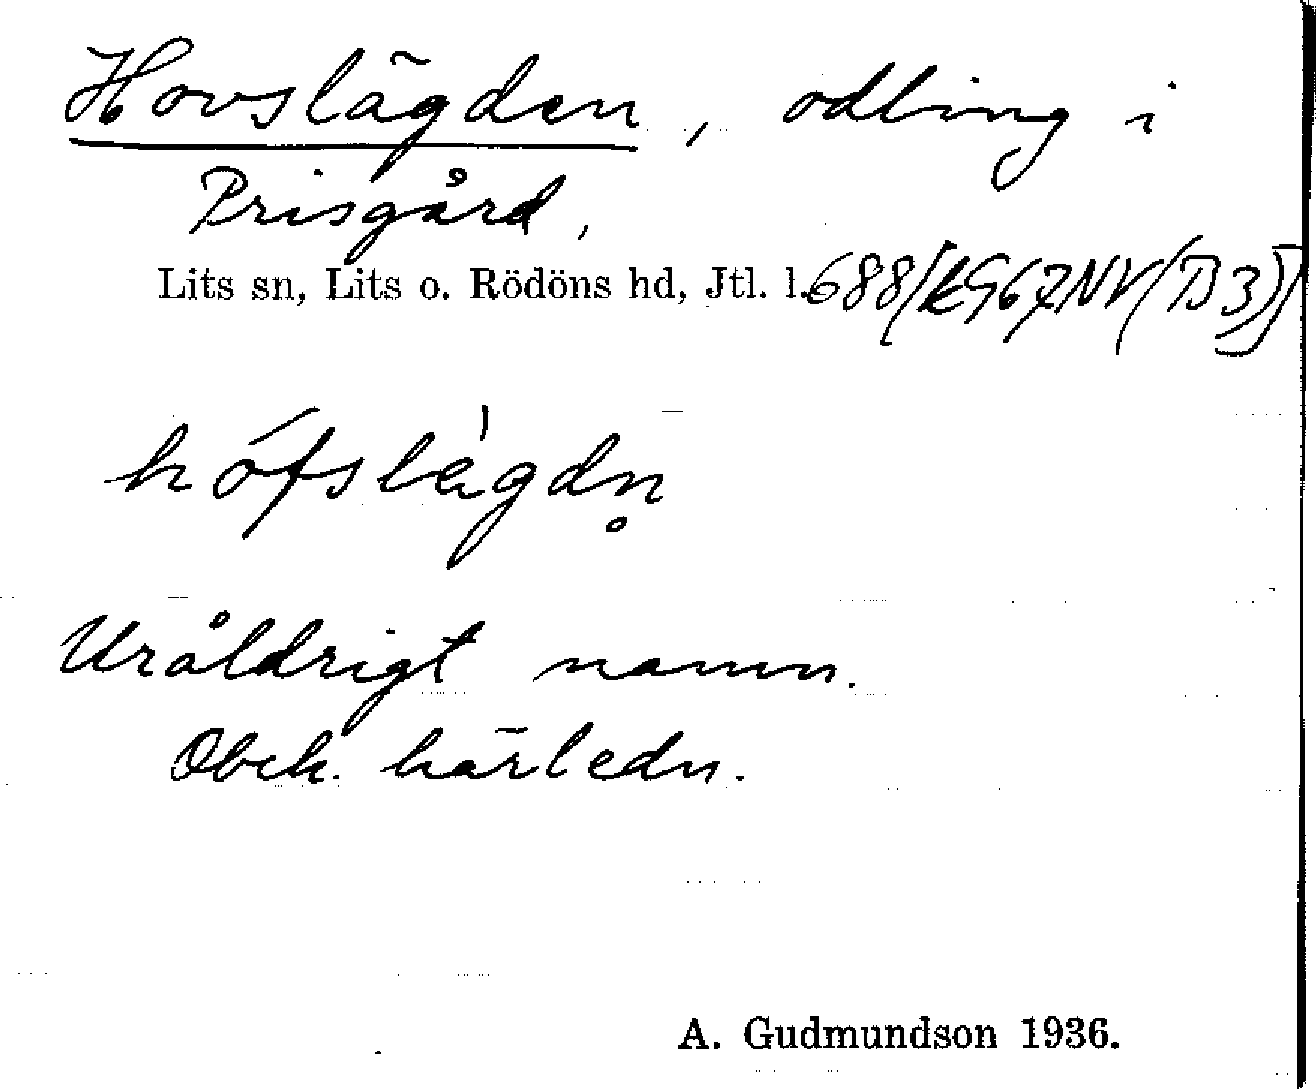 Hovslägden, odling i
Prisgård,
Lits sn, Lits o. Rödöns hd, Jtl. l.
hófslägdn̥
Uråldrigt namn.
Obek. härledn.
A. Gudmundson 1936.